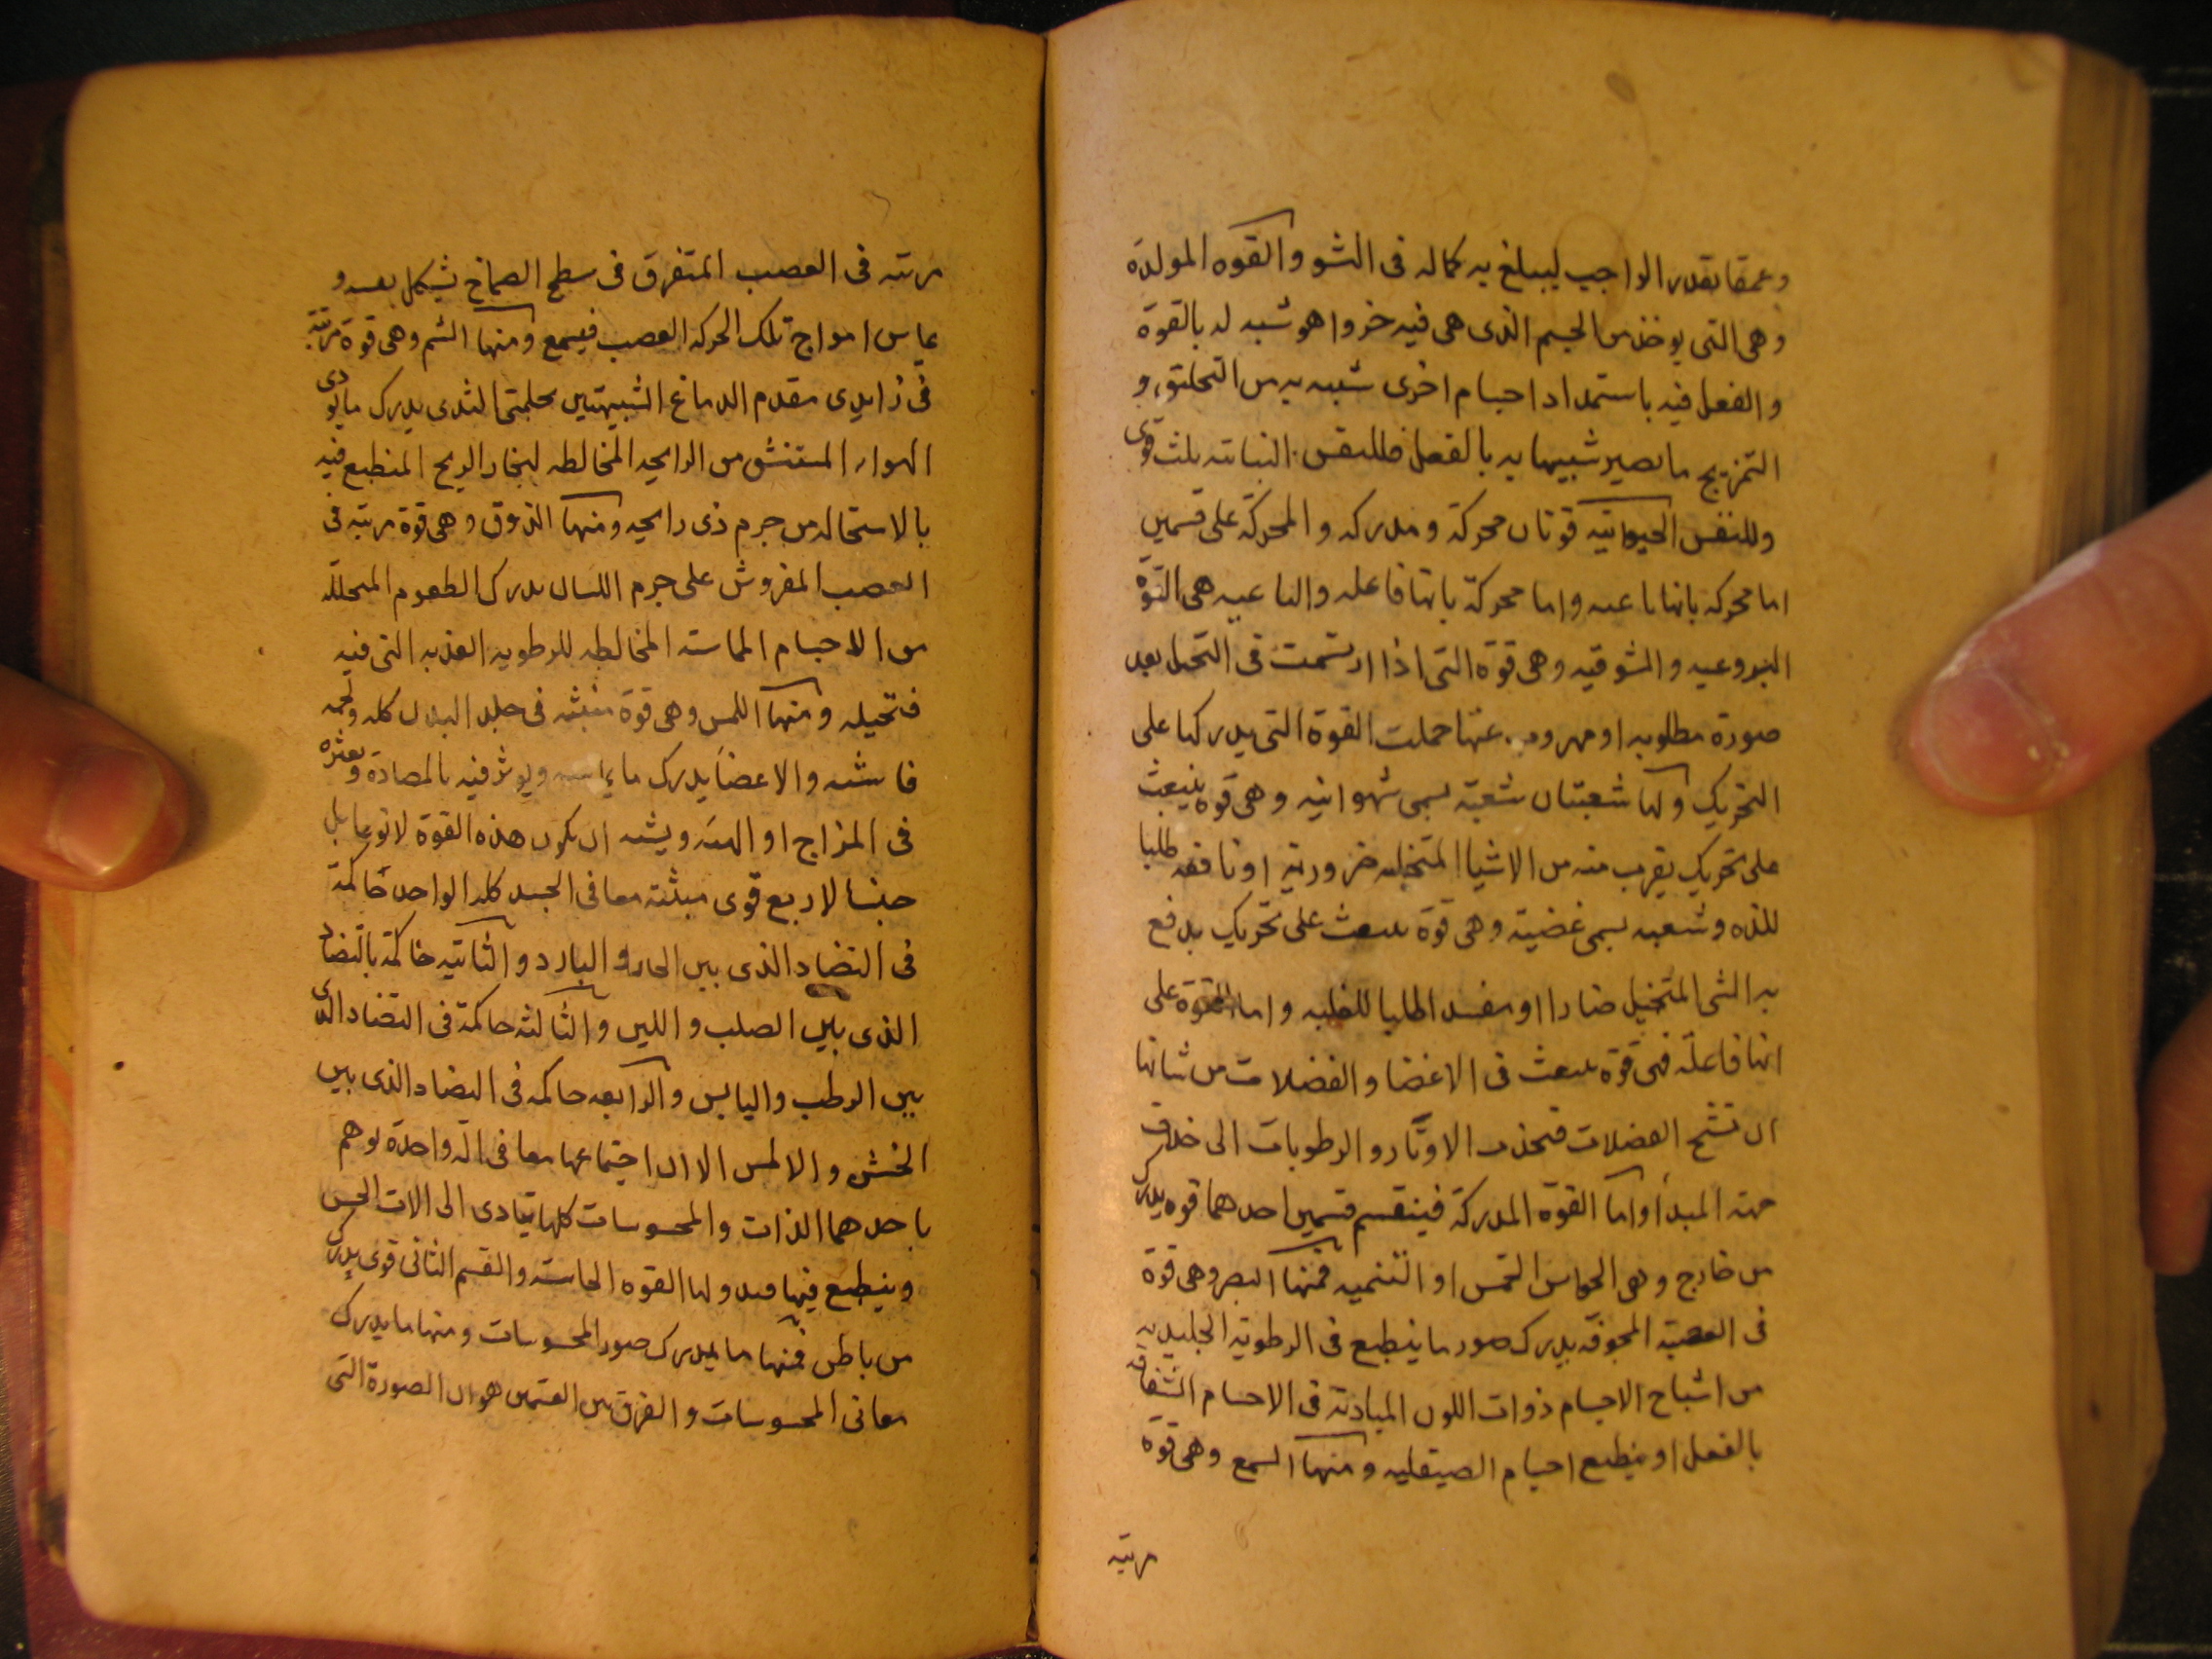 وعمقا بقدر الواجب ليبلغ به كماله فى النشو والقوه المولدة
وهى التى يوخذ من الجسم الذى هى فيه خروا هو شبه له بالقوة
والفعل فيه باستمداد اجسام اخرى شبيه به من التخليق و
التمزيج ما يصير شبيها به بالفعل فللنفس النباتيه ثلث قوى
وللنفس الحيوانيه قوتان محركة ومدركه والمحركة على قسمين
اما محركه بانها باعثه واما محركة بانها فاعله والباعثه هى القوة
النروعيه والشوقيه وهى قوة التى اذا ارتسمت فى التخيل بعد
صورة مطلوبه او مهروب عنها حملت القوة التى يدركها على
التحريك ولها شعبتان شعبة يسمى شهوانيه وهى قوه ينبعث
على تحريك يقرب منه من الاشيا المتخيله ضرورية او نافعه طلبا
للذه وشعبه يسمى غضبية وهى قوة ينبعث على تحريك يدفع
به الشى المتخيل ضارا او مفسد اطلبا للغلبه واما القوة على
انها فاعلة فهى قوة ينبعث فى الاعضا والفضلات من شانها
ان تشنج العضلات فتجذب الاوتار والرطوبات الى خلاف
جهة المبدأ واما القوة المدركة فينقسم قسمين احدهما قوه يدرك
من خارج وهى الحواس الخمس او الثمنيه فمنها البصر وهى قوة
فى العصبة المجوفة يدرك صور ما ينطبع فى الرطوبة الجليديه
من اشباح الاجسام ذوات اللون المبادئة فى الاجسام الشفافه
بالفعل او ينطبع اجسام الصيقليه ومنها السمع وهى قوة
مرتبه
مرتبه فى العصب المتفرق فى سطح الصماخ يشكل بعد و
يماس امواج تلك الحركه العصب فيسمع ومنها الشم وهى قوة مرتبة
فى زايدى مقدم الدماغ الشبيهتين بحلمتى الثدى يدرك ما يودى
الهواء المستنشق من الرايحه المخالطه لبخار الريح المنطبع فيه
بالاستحاله من جرم ذى رايحه ومنها الذوق وهى قوة مرتبه فى
العصب المفروش على جرم اللسان يدرك الطعوم المتحللة
من الاجسام المماسة المخالطه للرطوبه العذبه التى فيه
فتحيله ومنها اللمس وهى قوة منبثه فى جلد البدن كله ولحمه
فاشيه والاعضا يدرك ما يماسه ويوثر فيه بالمضادة ويغيره
فى المزاج او الهيئه ويشبه ان يكون هذه القوة لا نوعا بل
جنسا لاربع قوى منبثة معا فى الجسد كله الواحد حاكمة
فى التضاد الذى بين الحار والبارد والثانيه حاكمة بالتضاد
الذى بين الصلب واللين والثالثه حاكمة فى التضاد الذى
بين الرطب واليابس والرابعه حاكمه فى التضاد الذى بين
الخشن والاملس الا ان اجتماعها معا فى آلة واحدة يوهم
باحدهما الذات والمحسوسات كلها يتادى الى الات الحس
وينطبع فيها فيدركها القوه الحاسة والقسم الثانى قوى يدرك
من باطن فمنها ما يدرك صور المحسوسات ومنها ما يدرك
معانى المحسوسات والفرق بين القسمين هو ان الصورة التى